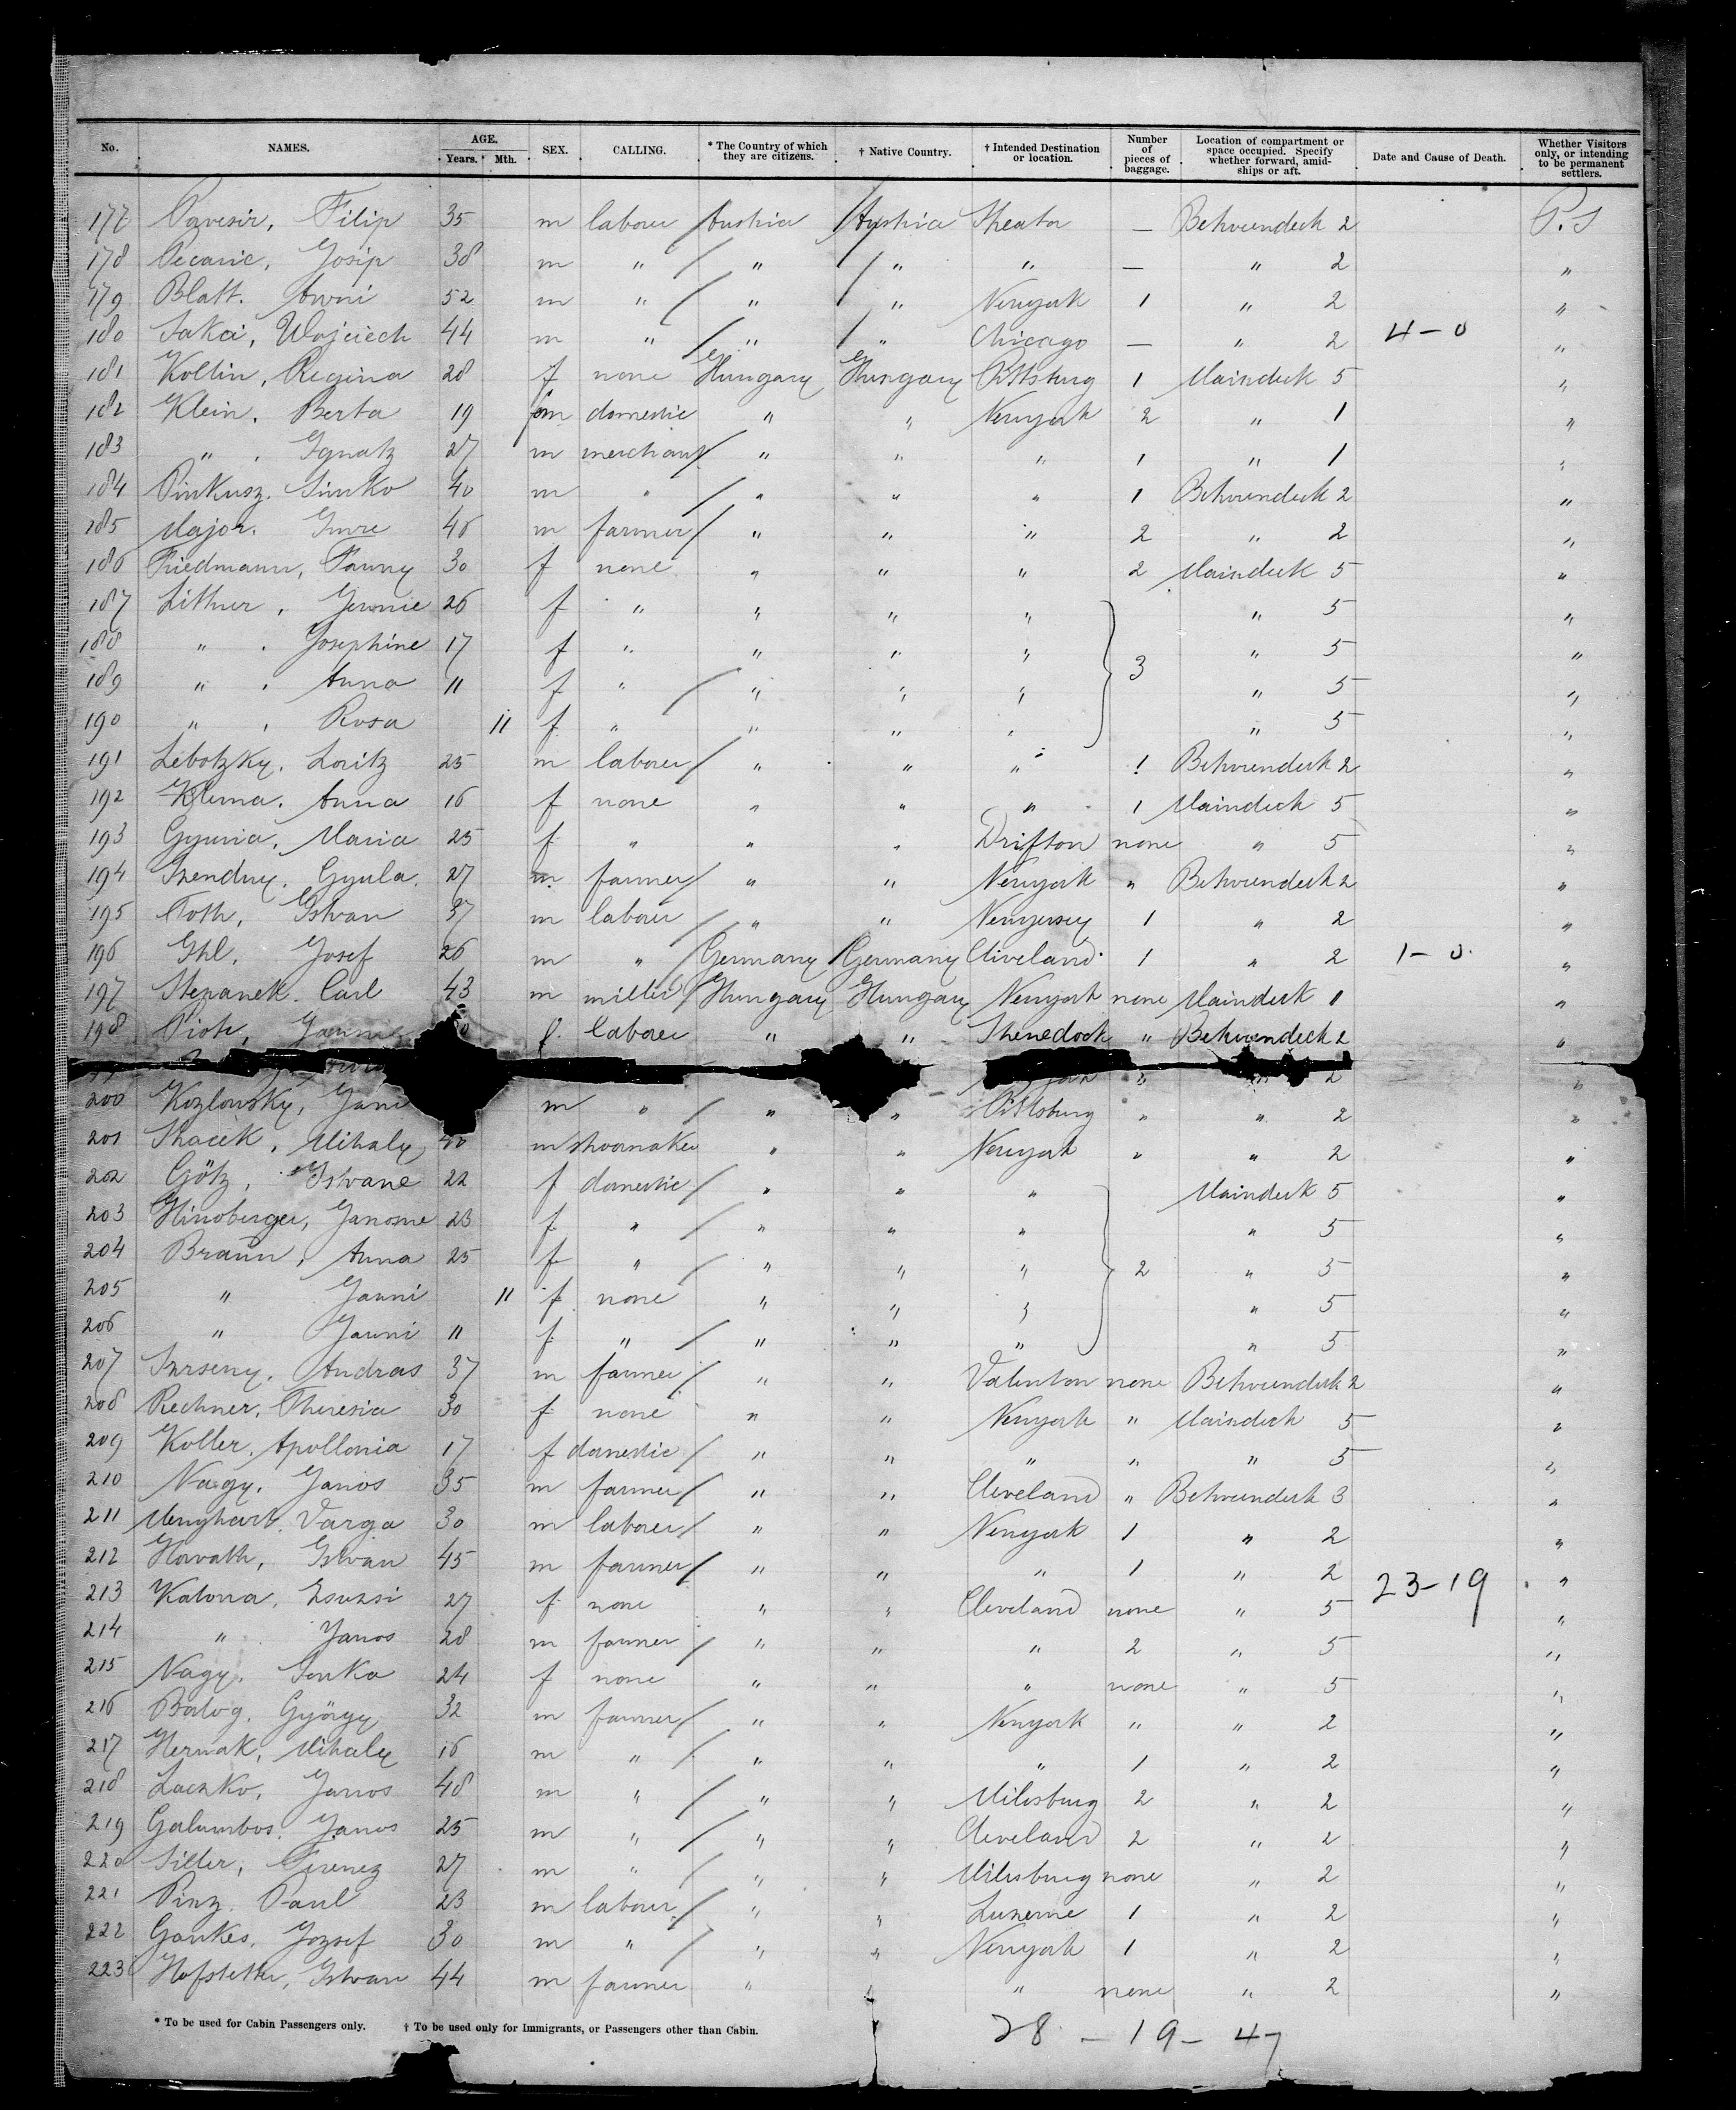 No. NAMES. AGE. Years. Mth. SEX. CALLING. * The Country of which they are citizens. † Native Country. † Intended Destination or location. Number of pieces of baggage. Location of compartment or space occupied. Specify whether forward, amidships or aft. Date and Cause of Death. Whether Visitors only, or intending to be permanent settlers.
177 Filip 35 m laborer Austria Austria — Betweendeck 2 P.S
178 Pecaric, Josip 38 m " " " " — " 2 "
179 Blatt. 52 m " " " Newyork 1 " 2 "
180 Wojciech 44 m " " " Chicago — " 2 4-0 "
181 Kollin, Regina 28 f none Hungary Hungary Pittsburg 1 Maindeck 5 "
182 Klein, Berta 19 domestic " " Newyork 2 " 1 "
183 " . Ignatz 27 m merchant " " " 1 " 1 "
184 Pinkusz. Simko 40 m " " " " 1 Betweendeck 2 "
185 Major. Imre 46 m farmer " " " 2 " 2 "
186 Friedmann, Fanny 30 f none " " " 2 Maindeck 5 "
187 Littner, 26 f " " " " " 5 "
188 " . Josephine 17 f " " " " 3 " 5 "
189 " . Anna 11 f " " " " " 5 "
190 " . Rosa 11 f " " " " " 5 "
191 Lebotzky. Loritz 25 m laborer " " " 1 Betweendeck 2 "
192 Klema. Anna 16 f none " " " 1 Maindeck 5 "
193 Gyuria, Maria 25 f " " " Drifton none " 5 "
194 Gyula. 27 m farmer " " Newyork " Betweendeck 2 "
195 Toth, Istvan 37 m laborer " " Newjersey 1 " 2 "
196 Ihl, Josef 26 m " Germany Germany Cleveland 1 " 2 1-0 "
197 Stepanek. Carl 43 m miller Hungary Hungary Newyork none Maindeck 1 "
198 f. laborer " " " Betweendeck 2 "
2 "
200 Kozlowsky, m " " " Pittsburg " " 2 "
201 Mihaly 40 m shoemaker " " Newyork " " 2 "
202 Götz, Istvane 22 f domestic " " " Maindeck 5 "
203 Janosne 23 f " " " " " 5 "
204 Braun, Anna 25 f " " " " 2 " 5 "
205 " Janni 11 f none " " " " 5 "
206 " Janni 11 f " " " " " 5 "
207 Andras 37 m farmer " " none Betweendeck 2 "
208 Rechner, Theresia 30 f none " " Newyork " Maindeck 5 "
209 Koller, Apollonia 17 f domestic " " " " " 5 "
210 Nagy, Janos 35 m farmer " " Cleveland " Betweendeck 3 "
211 Menyhart. Varga 30 m laborer " " Newyork 1 " 2 "
212 Horvath, Istvan 45 m farmer " " " 1 " 2 "
213 Katona, Zsuzsi 27 f none " " Cleveland none " 5 23-19 "
214 " Janos 28 m farmer " " " 2 " 5 "
215 Nagy, 24 f none " " " none " 5 "
216 Balog. György 32 m farmer " " Newyork " " 2 "
217 Hernak, Mihaly 16 m " " " " 1 " 2 "
218 Laczko, Janos 48 m " " " Milesburg 2 " 2 "
219 Galambos, Janos 25 m " " " Cleveland 2 " 2 "
220 Siller, Ferencz 27 m " " " Milesburg none " 2 "
221 Pinz. Paul 23 m laborer " " Luzerne 1 " 2 "
222 Gankes, Jozsef 30 m " " " Newyork 1 " 2 "
223 Hofstetter, Istvan 44 m farmer " " " none " 2 "
* To be used for Cabin Passengers only. † To be used only for Immigrants, or Passengers other than Cabin.
28 - 19 - 47